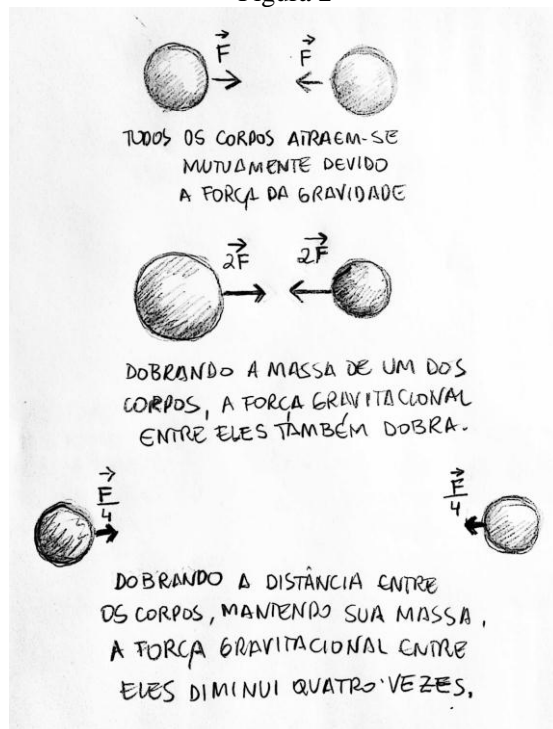 Figura 2
F F
TODOS OS CORPOS ATRAEM-SE
MUTUAMENTE DEVIDO
A FORÇA DA GRAVIDADE
2F 2F
DOBRANDO A MASSA DE UM DOS
CORPOS, A FORÇA GRAVITACIONAL
ENTRE ELES TAMBÉM DOBRA.
F/4 F/4
DOBRANDO A DISTÂNCIA ENTRE
OS CORPOS, MANTENDO SUA MASSA,
A FORÇA GRAVITACIONAL ENTRE
ELES DIMINUI QUATRO VEZES.